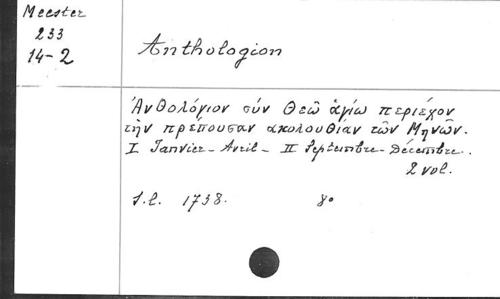 Meester
233
14-2
Anthologion
Ἀνθολόγιον σύν Θεῶ ἁγίω περιέχον
τὴν πρέπουσαν ἀκολουθίαν τῶν Μηνῶν.
I Janvier - Avril - II Septembre - Décembre.
2 vol.
S.l. 1738. 8°